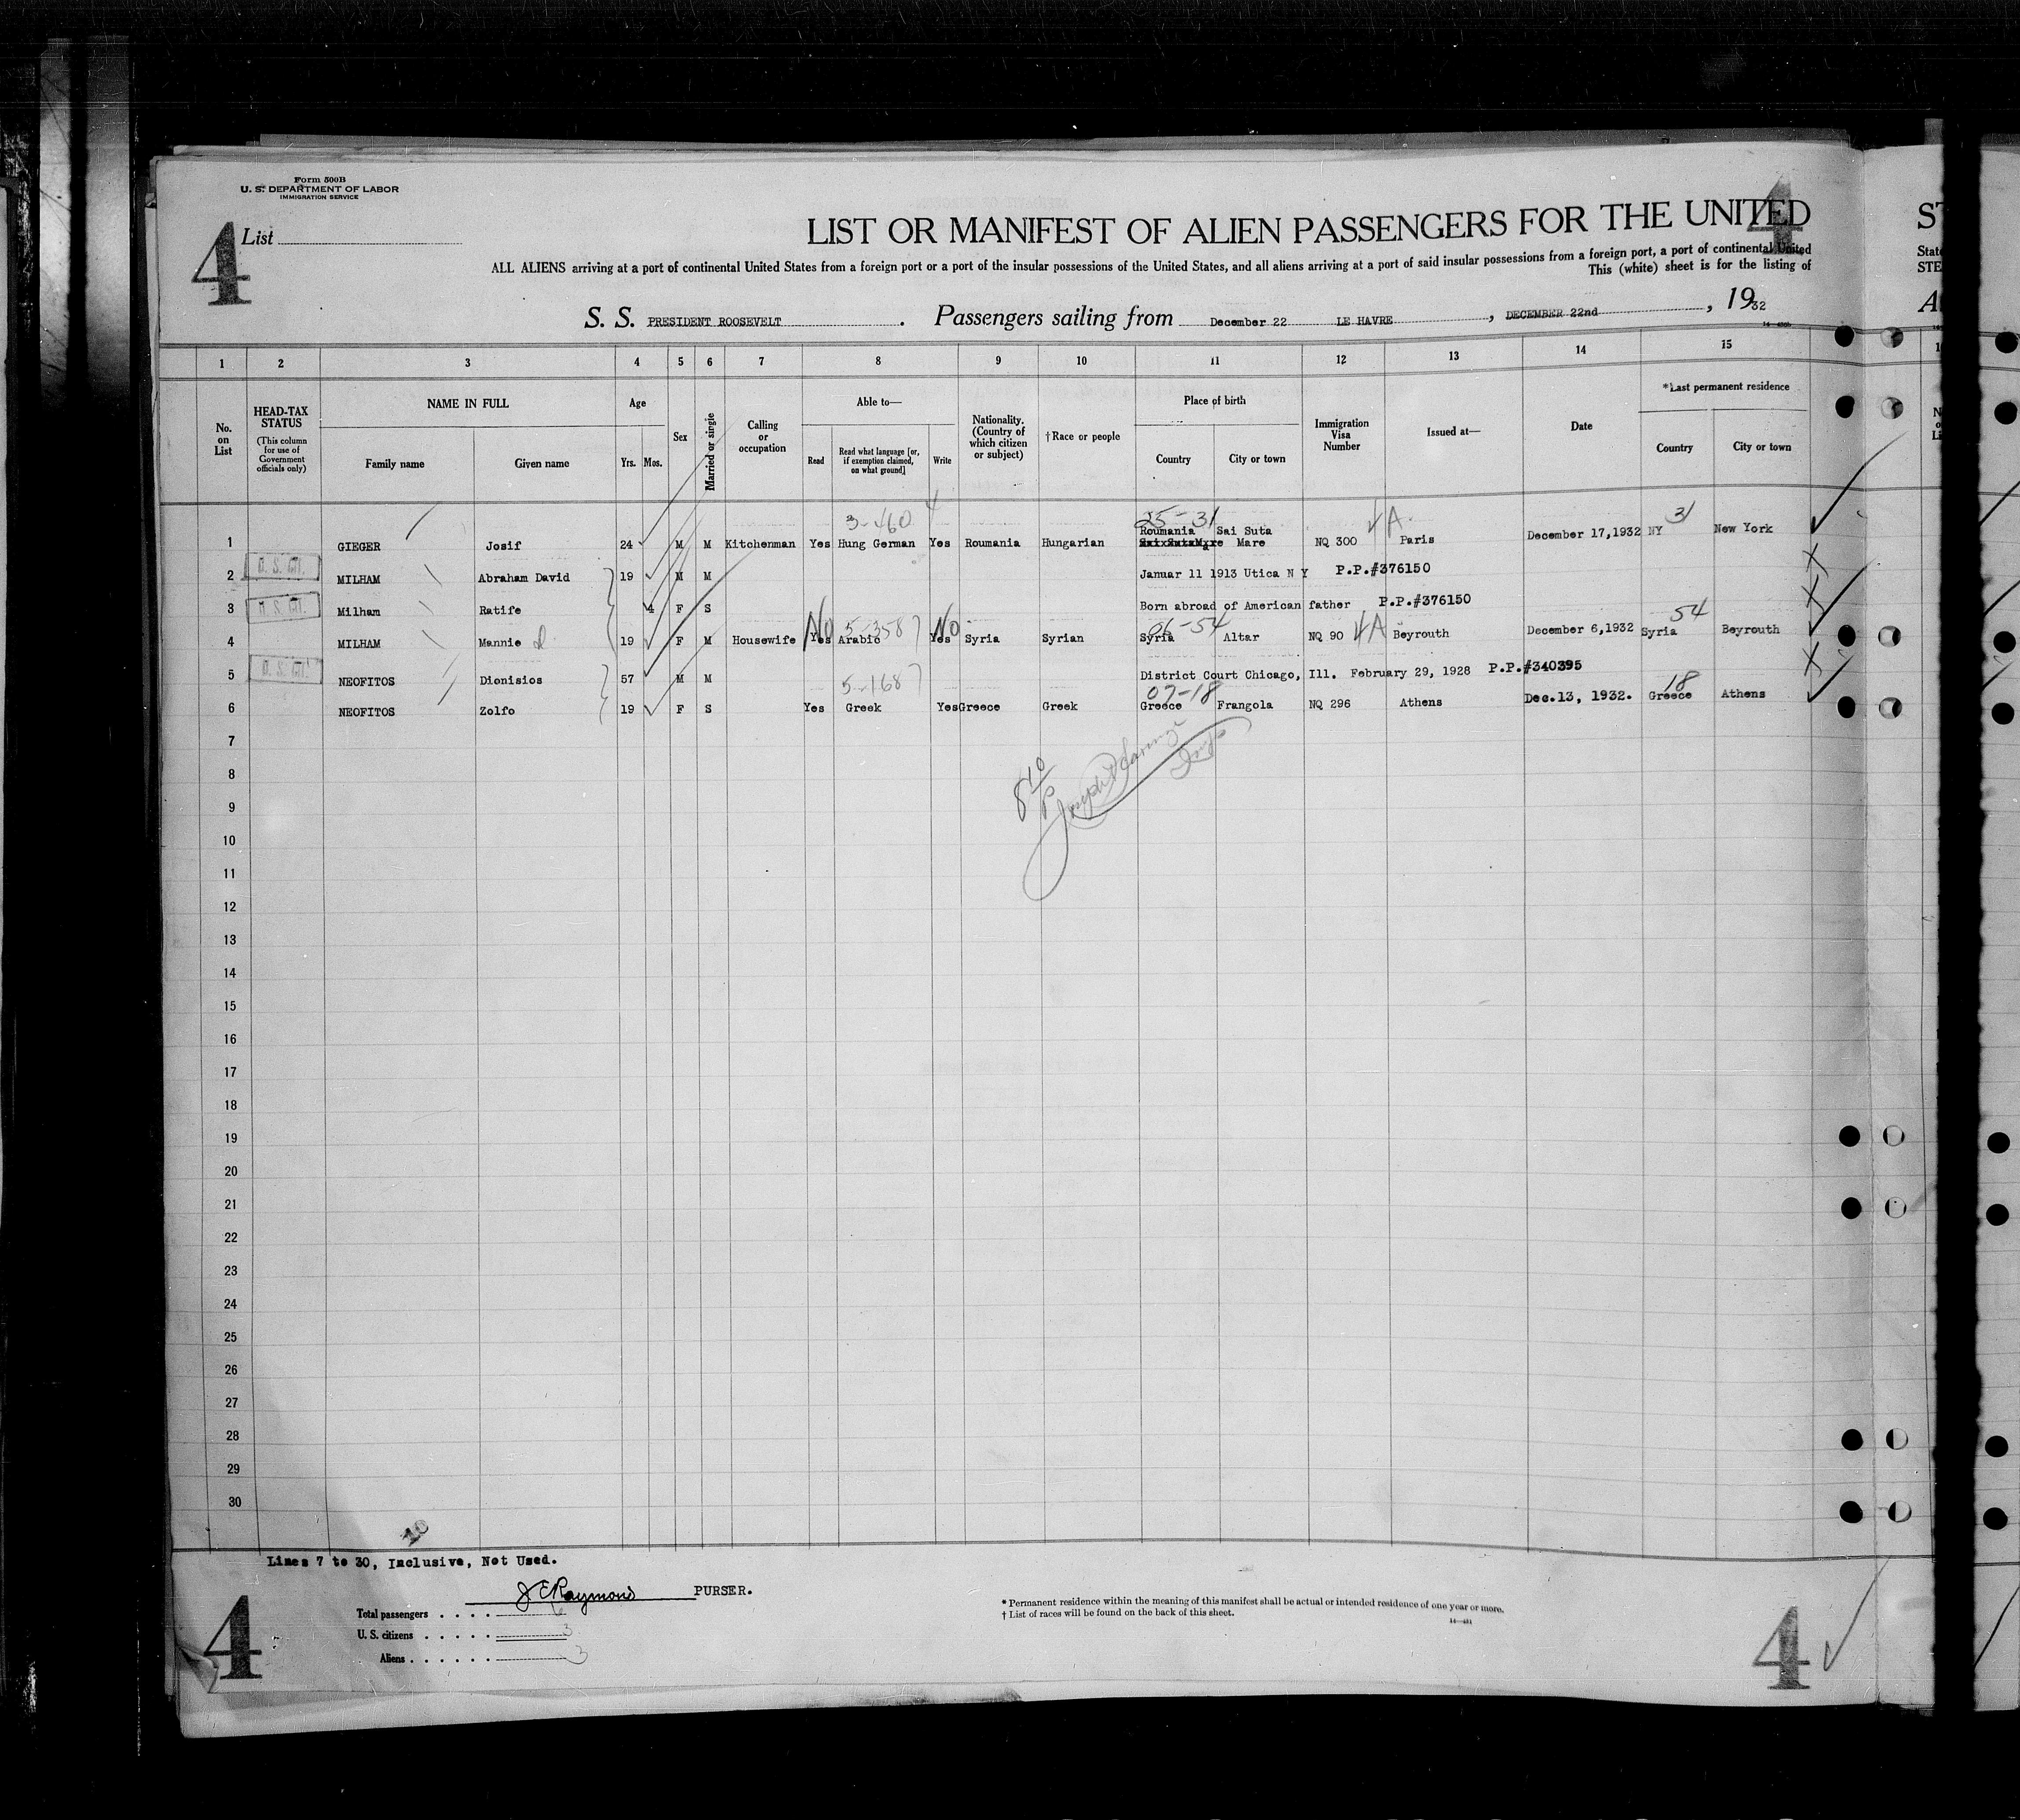 Form 500B
U. S. DEPARTMENT OF LABOR
IMMIGRATION SERVICE
4
List
4
LIST OR MANIFEST OF ALIEN PASSENGERS FOR THE UNITED
ALL ALIENS arriving at a port of continental United States from a foreign port or a port of the insular possessions of the United States, and all aliens arriving at a port of said insular possessions from a foreign port, a port of continental United
This (white) sheet is for the listing of
S. S. PRESIDENT ROOSEVELT . Passengers sailing from December 22 LE HAVRE , DECEMBER 22nd , 1932
1 2 3 4 5 6 7 8 9 10 11 12 13 14 15
No. on List
HEAD-TAX STATUS
(This column for use of Government officials only)
NAME IN FULL
Family name Given name
Age
Yrs. Mos.
Sex
Married or single
Calling or occupation
Able to—
Read
Read what language [or, if exemption claimed, on what ground]
Write
Nationality. (Country of which citizen or subject)
†Race or people
Place of birth
Country City or town
Immigration Visa Number
Issued at—
Date
*Last permanent residence
Country City or town
3-460 25-31 A. 31
Roumania Sai Suta
1 GIEGER Josif 24 M M Kitchenman Yes Hung German Yes Roumania Hungarian Mare NQ 300 Paris December 17,1932 NY New York
2 U. S. CIT. MILHAM Abraham David 19 M M Januar 11 1913 Utica N Y P.P.#376150
3 U. S. CIT. Milham Ratife 4 F S Born abroad of American father P.P.#376150
No 5-358 No 06-54 54
4 MILHAM Mannie 19 F M Housewife Yes Arabic Yes Syria Syrian Syria Altar NQ 90 A Beyrouth December 6,1932 Syria Beyrouth
5 U. S. CIT. NEOFITOS Dionisios 57 M M District Court Chicago, Ill. February 29, 1928 P.P.#340395
5-168 07-18 18
6 NEOFITOS Zolfo 19 F S Yes Greek Yes Greece Greek Greece Frangola NQ 296 Athens Dec.13, 1932. Greece Athens
7
8
9
10
11
12
13
14
15
16
17
18
19
20
21
22
23
24
25
26
27
28
29
30
Lines 7 to 30, Inclusive, Not Used.
J E Raymond PURSER.
Total passengers . . . . 6
U. S. citizens . . . . . 3
Aliens . . . . . . 3
* Permanent residence within the meaning of this manifest shall be actual or intended residence of one year or more.
† List of races will be found on the back of this sheet.
4
4